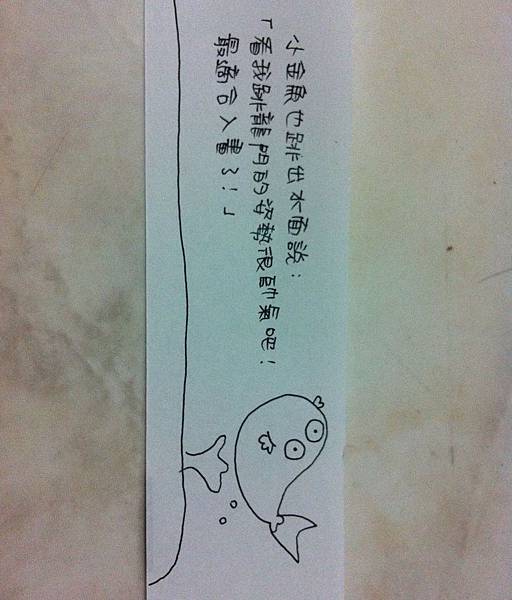 小金魚也跳出水面說:
「看我跳龍門的姿勢很帥氣吧!
最適合入畫了!」